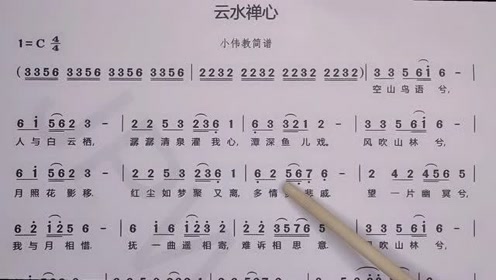 云水禅心
1=C 4/4 小伟教简谱
( 3356 3356 3356 3356 | 2232 2232 2232 2232 ) | 3 3 5 6 i 6 - |
空山鸟语兮,
6 i 5 6 2 3 - | 2 1 2 3 5 2 3 6 1 | 6 3 3 2 1 2 - | 3 3 5 6 i 6 - |
人与白云栖, 潺潺清泉濯我心, 潭深鱼儿戏。 风吹山林兮,
6 i 5 6 2 3 - | 2 1 2 3 5 2 3 6 1 | 6 2 5 6 7 6 - | 2 4 2 4 5 6 5 -
月照花影移, 红尘如梦聚又离, 多情 悲戚 望一片幽冥兮,
我与月相惜, 抚一曲遥相寄, 难诉相思意 风吹山林兮,